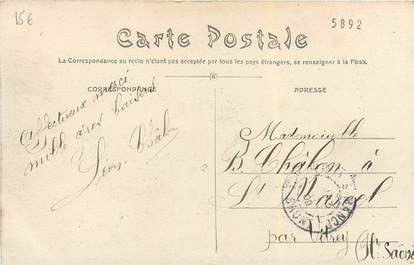 15€
5892
Carte Postale
La Correspondance au recto n'étant pas acceptée par tous les pays étrangers, se renseigner à la Poste.
CORRESPONDANCE
Affectueux merci
mille gros baisers
Léon Châlon
ADRESSE
Mademoiselle
B. Châlon à
St Marcel
par Vitrey
Hte Saône